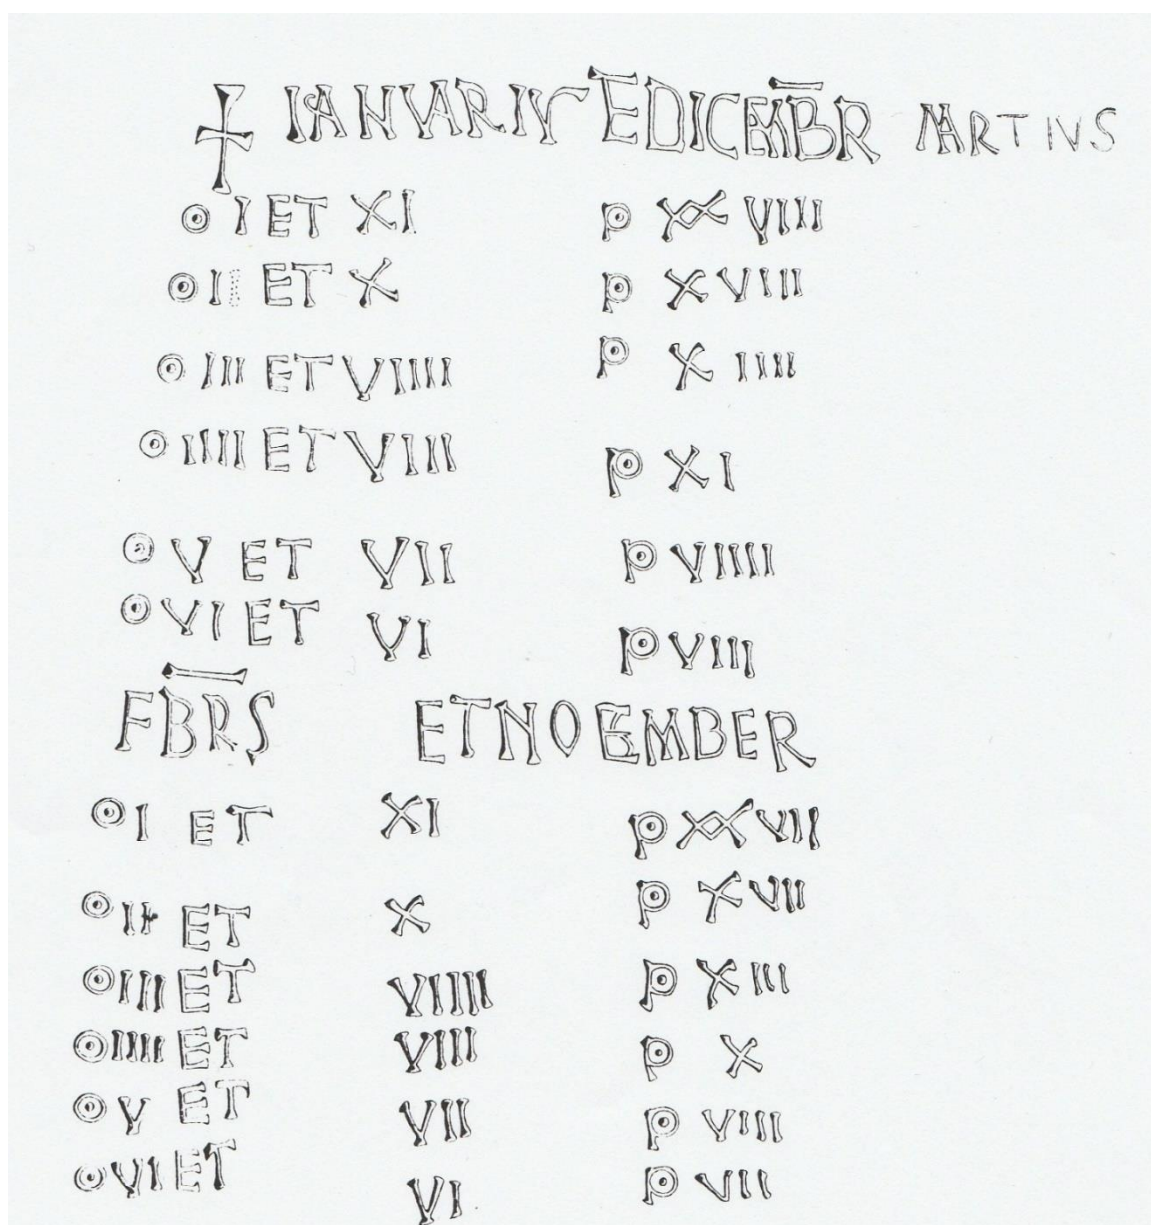 ✝ IANVARIV EDICEMBR MARTIVS
O I ET XI P XXVIII
O II ET X P XVIII
O III ET VIIII P XIIII
O IIII ET VIII P XI
O V ET VII P VIIII
O VI ET VI P VIII
FBRS ETNOEMBER
O I ET XI P XXVII
O II ET X P XVII
O III ET VIIII P XIII
O IIII ET VIII P X
O V ET VII P VIII
O VI ET VI P VII